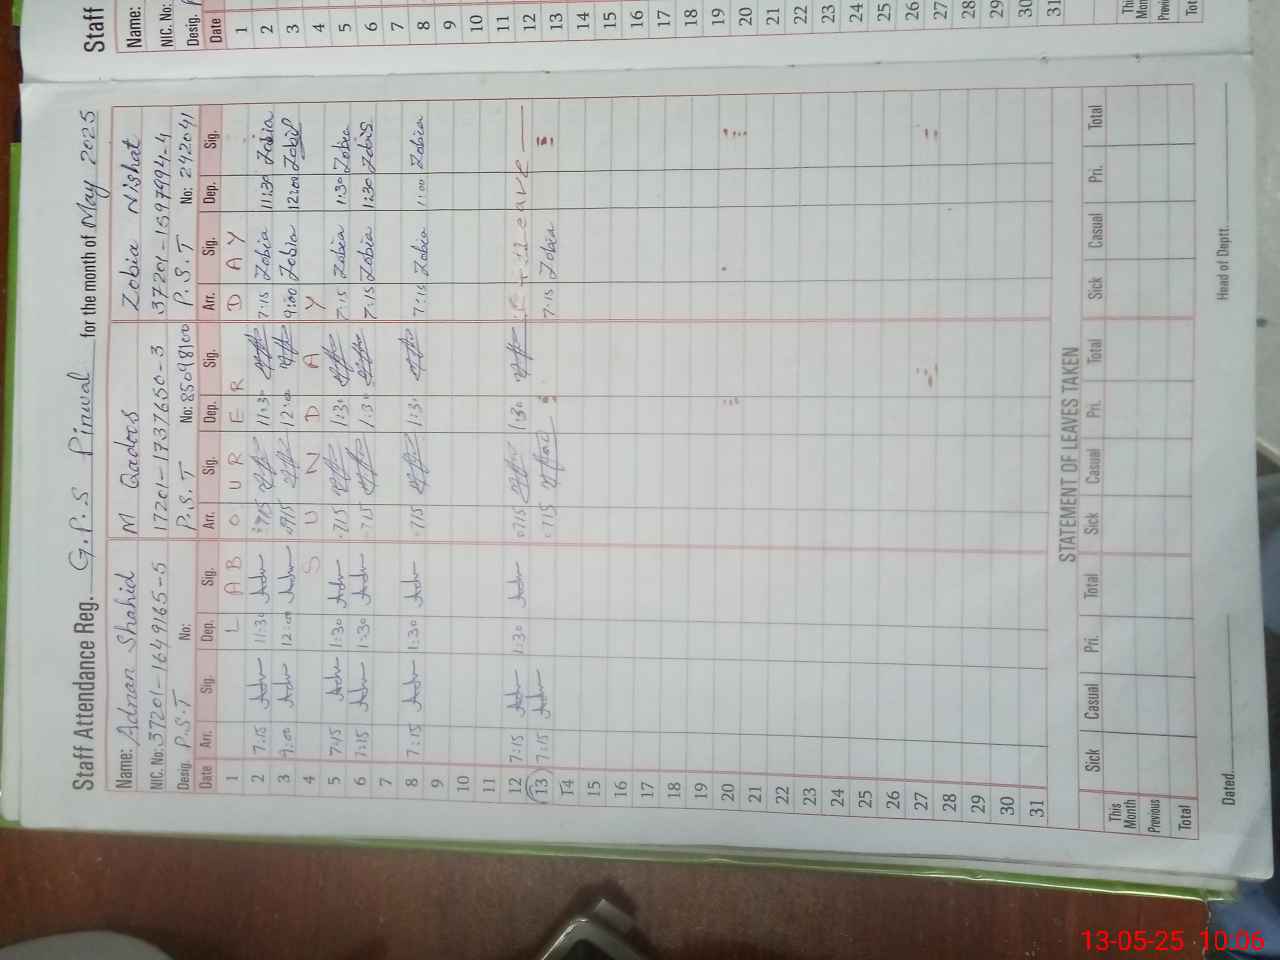 Staff Attendance Reg. G.P.S Pinwal for the month of May 2025
Name: Adnan Shahid M Qadoos Zobia Nishat
NIC. No: 37201-1649165-5 17201-1737650-3 37201-1597994-4
Desig. P.S.T No: P.S.T No: 85098100 P.S.T No: 242041
Date Arr. Sig. Dep. Sig. Arr. Sig. Dep. Sig. Arr. Sig. Dep. Sig.
1 L A B O U R E R D A Y
2 7:15 Adn 11:30 Adn 0715 11:30 7:15 Zobia 11:30 Zobia
3 9:00 Adn 12:00 Adn 12:00 9:00 Zobia 12:00 Zobia
4 S U N D A Y
5 7:15 Adn 1:30 Adn 0715 1:30 7:15 Zobia 1:30 Zobia
6 7:15 Adn 1:30 Adn 0715 1:30 7:15 Zobia 1:30 Zobia
7
8 7:15 Adn 1:30 Adn 0715 1:30 7:15 Zobia 11:00 Zobia
9
10
11
12 7:15 Adn 1:30 Adn 0715 1:30 leave
13 7:15 Adn 0715 7:15 Zobia
14
15
16
17
18
19
20
21
22
23
24
25
26
27
28
29
30
31
STATEMENT OF LEAVES TAKEN
Sick Casual Pri. Total Sick Casual Pri. Total Sick Casual Pri. Total
This Month
Previous
Total
Dated Head of Deptt.
Staff
Name:
NIC. No:
Desig.
Date
1
2
3
4
5
6
7
8
9
10
11
12
13
15
16
17
18
19
20
21
22
23
24
25
26
27
28
29
30
31
This
13-05-25 10:06